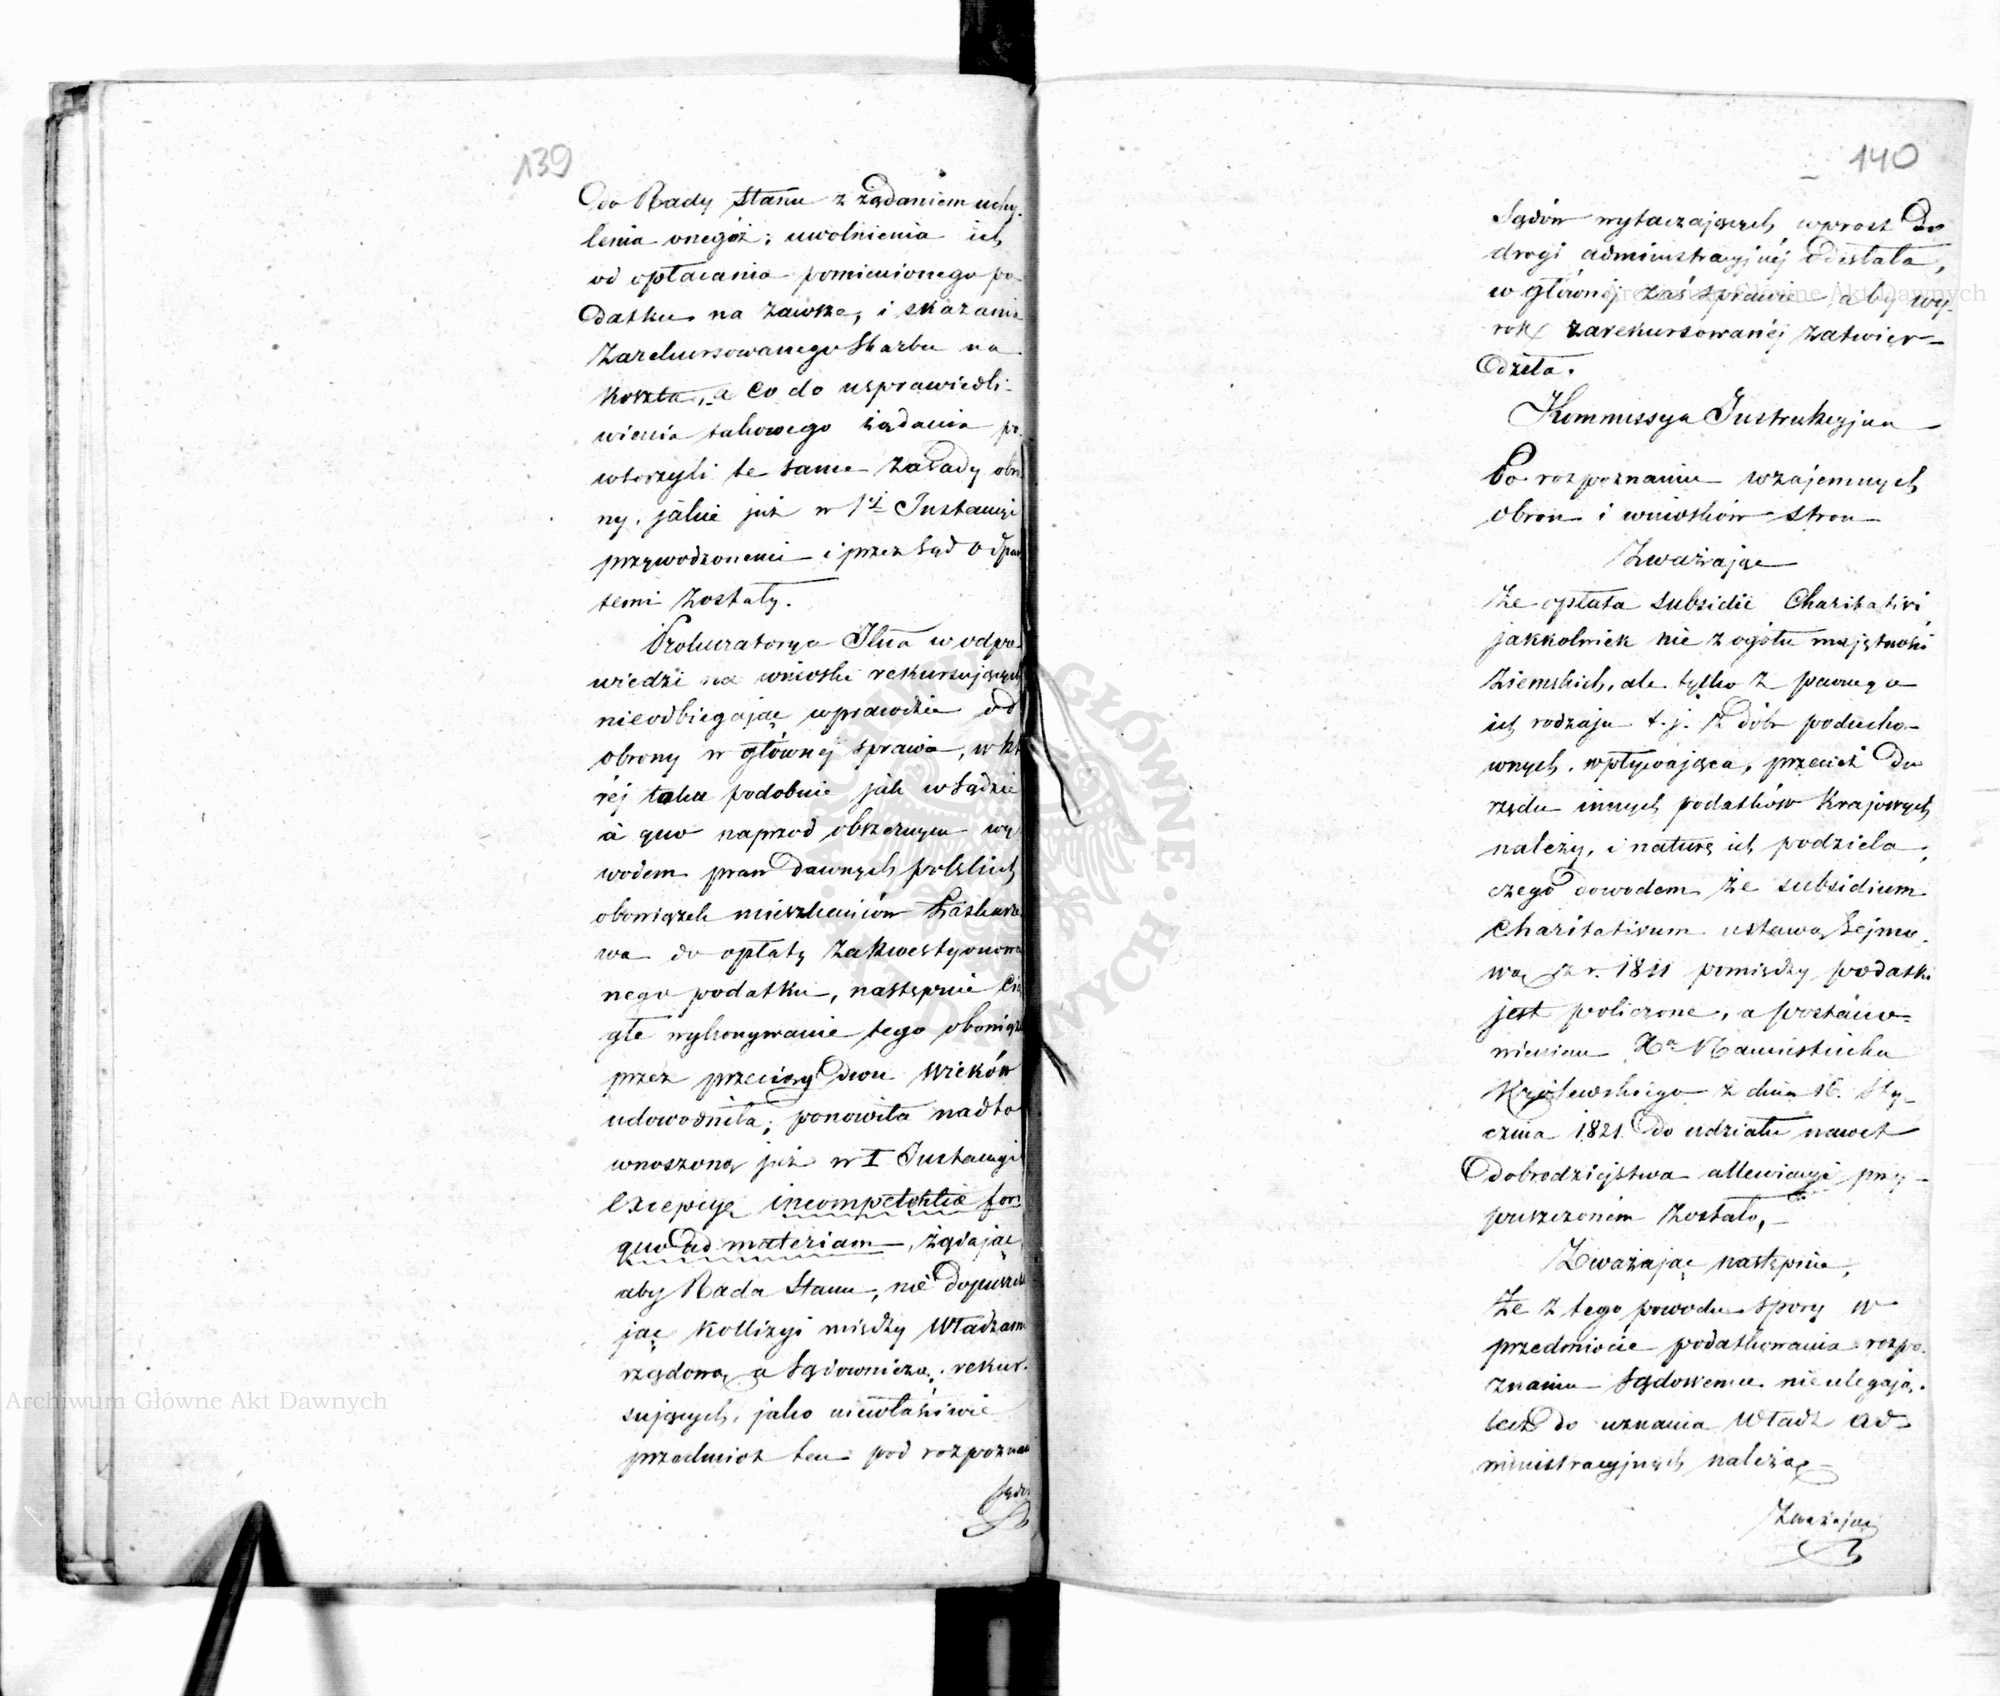 139
do Rady Stanu z żądaniem uchy-
lenia onegóż; uwolnienia ich
od opłacania pomienionego po-
datku na zawsze, i skazania
zarekursowanego Skarbu na
koszta, a co do usprawiedli-
wienia takowego żądania po-
wtorzyli te same zasady obro
ny, jakie już w 1éj Instancyi
przywodzonemi i przez Sąd odpar
temi zostały.
Prokuratorya Jlna w odpo-
wiedzi na wnioski rekursujących
nieodbiegając wprawdzie od
obrony w głównej sprawie, w kt
rėj taka podobnie jak w Sądzie
à quo naprzod obszernym wy
wodem praw dawnych polskich
obowiązek mieszkańców
wa do opłaty zakwestyonowa
nego podatku, następnie cią
głe wykonywanie tego obowiązk
przez przeciąg dwu wieków
udowodniła; ponowiła nadto
wnoszoną już w I Instancyi
Excepcyę incompetentiæ fori
quo ad materiam, żądając
aby Rada Stanu, nie dopuszcza
jąc kollizyi między Władzam
rządową a Sądowniczą, rekur-
sujących, jako niewłaściwie
przedmiot ten pod rozpoznan
Sądó
140
Sądów wytaczających wprost do
drogi administracyjnéj odesłała,
w głównéj zaś sprawie aby wy-
rok zarekursowanéj zatwier-
dziła.
Kommissya Instrukcyjna
Po rozpoznaniu wzajemnych
obron i wniosków stron
Zważając
że opłata subsidii Charitativi
jakkolwiek nie z ogółu majętności
ziemskich, ale tylko z pewnego
ich rodzaju t. j. z dóbr poducho-
wnych, wpływająca, przecież do
rzędu innych podatków Krajowych
należy, i naturę ich podziela,
czego dowodem że subsidium
Charitativum ustawą Sejmo-
wą z r. 1811 pomiędzy podatki
jest policzone, a postano-
wieniem Xa Namiestnika
Królewskiego z dnia 16. Sty-
cznia 1821. do udziału nawet
dobrodziejstwa allewiacyi przy-
puszczoném zostało,
Zważając następnie,
że z tego powodu spory w
przedmiocie podatkowania rozpo-
znaniu Sądowemu nieulegają,
lecz do uznania Władz ad-
ministracyjnych należą
Zważając
Archiwum Główne Akt Dawnych
Archiwum Główne Akt Dawnych
ARCHIWUM GŁÓWNE AKT DAWNYCH